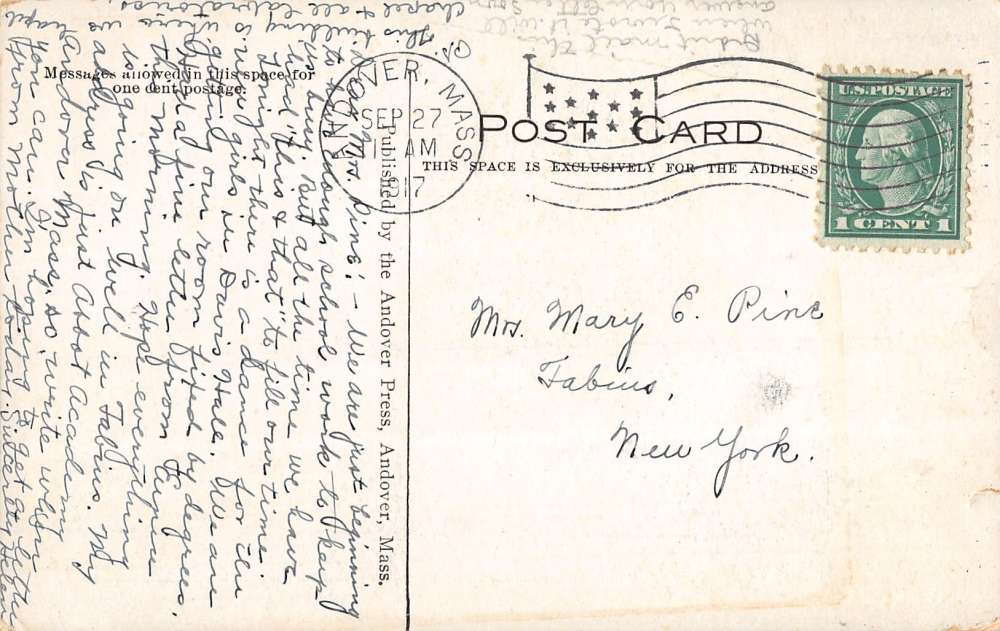 Messages allowed in this space for
one cent postage.
POST CARD
THIS SPACE IS EXCLUSIVELY FOR THE ADDRESS
ANDOVER, MASS.
SEP 27
11 AM
1917
U.S. POSTAGE
1 CENT 1
Published by the Andover Press, Andover, Mass.
Mrs. Mary E. Pine
Fabius,
New York.
Dear Mrs. Pine: - We are just beginning
to have enough school work to keep
us busy. But all the time we have
had "this & that" to fill our time.
Tonight there is a dance for the
new girls in Davis Hall. We are
getting our room fixed by degrees.
Had a fine letter from
this morning. Hope everything
is going on well in Fabius. My
address is just Abbot Academy
Andover Mass, so write when
you can. I'm hoping to get a letter
from Mother today. Helen
This building is where
chapel & all laboratories
Didn't mail this
when I wrote it. Will
answer your letter soon